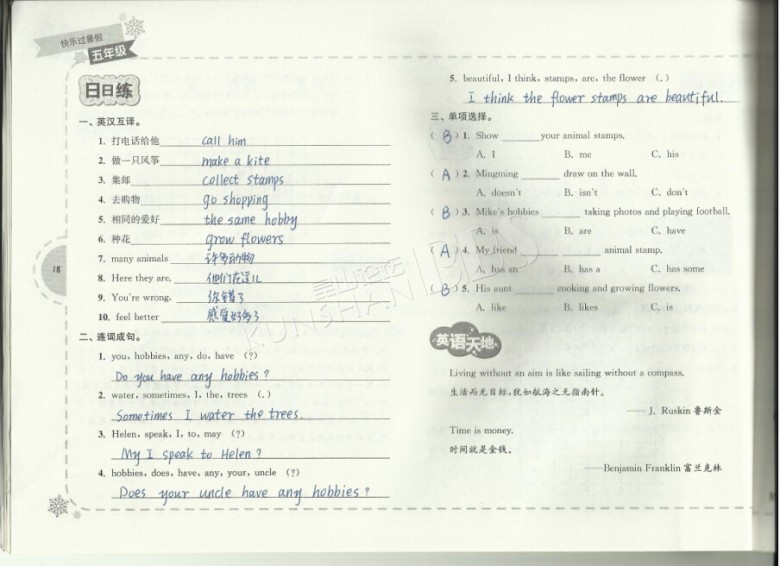 快乐过暑假
五年级
日日练
一、英汉互译。
1. 打电话给他 call him
2. 做一只风筝 make a kite
3. 集邮 collect stamps
4. 去购物 go shopping
5. 相同的爱好 the same hobby
6. 种花 grow flowers
7. many animals 许多动物
8. Here they are. 他们在这儿
9. You're wrong. 你错了
10. feel better 感觉好多了
二、连词成句。
1. you, hobbies, any, do, have (?)
Do you have any hobbies?
2. water, sometimes, I, the, trees (.)
Sometimes I water the trees.
3. Helen, speak, I, to, may (?)
My I speak to Helen?
4. hobbies, does, have, any, your, uncle (?)
Does your uncle have any hobbies?
18
5. beautiful, I think, stamps, are, the flower (.)
I think the flower stamps are beautiful.
三、单项选择。
( B ) 1. Show ______ your animal stamps.
A. I B. me C. his
( A ) 2. Mingming ______ draw on the wall.
A. doesn't B. isn't C. don't
( B ) 3. Mike's hobbies ______ taking photos and playing football.
A. is B. are C. have
( A ) 4. My friend ______ animal stamp.
A. has an B. has a C. has some
( B ) 5. His aunt ______ cooking and growing flowers.
A. like B. likes C. is
英语天地
Living without an aim is like sailing without a compass.
生活而无目标,犹如航海之无指南针。
—— J. Ruskin 鲁斯金
Time is money.
时间就是金钱。
——Benjamin Franklin 富兰克林
KUNSHAN BBS